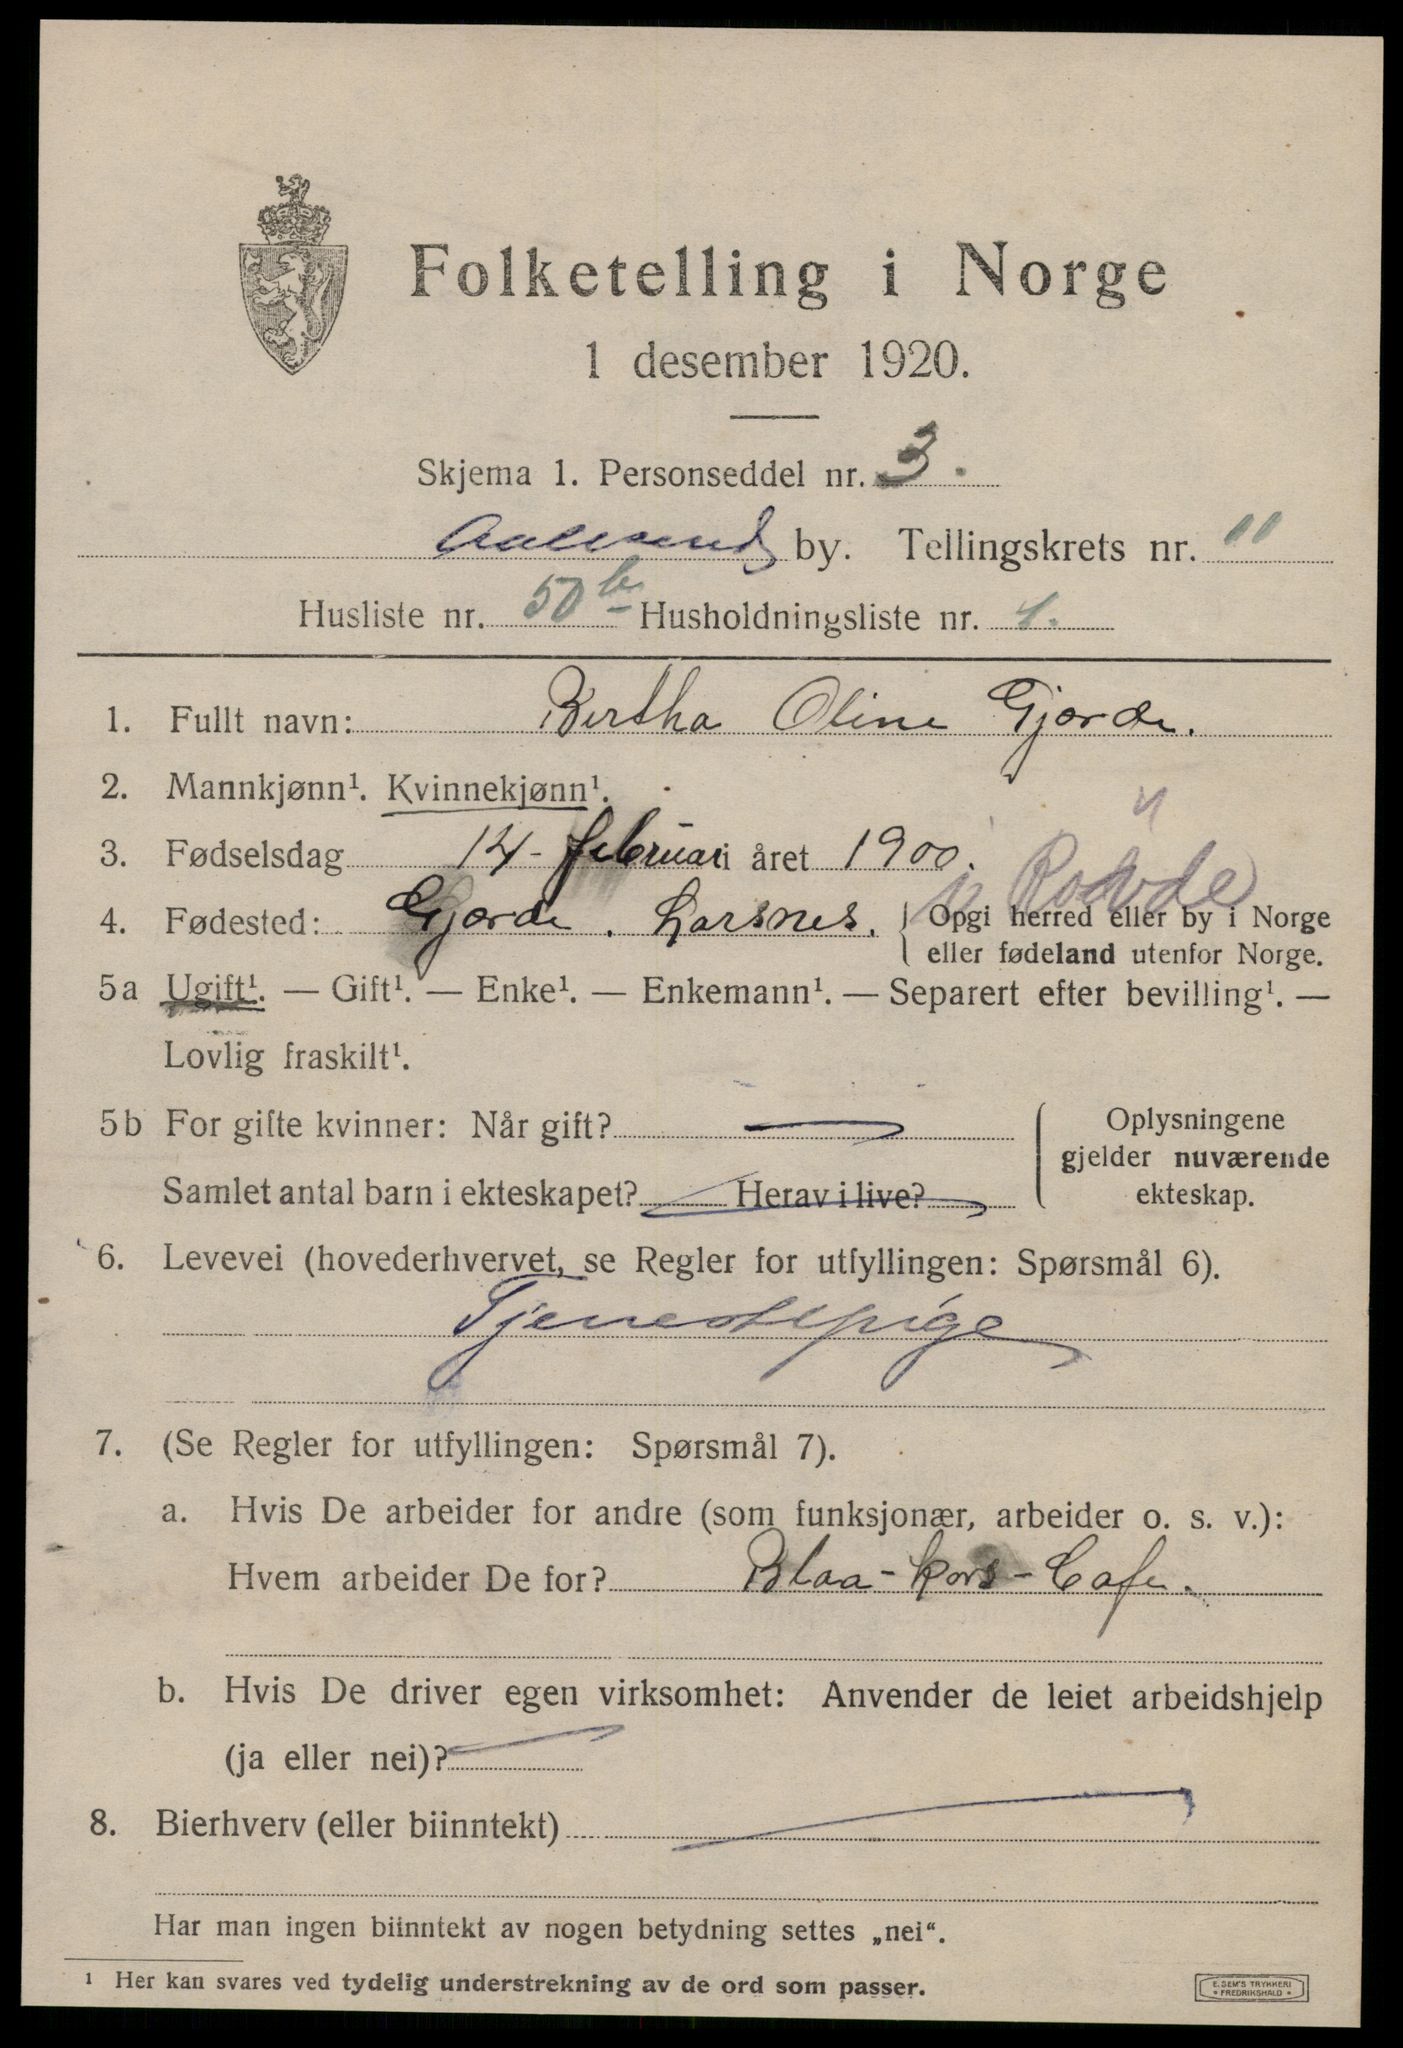 Folketelling i Norge
1 desember 1920.
Skjema 1. Personseddel nr. 3.
Aalesund by. Tellingskrets nr. 11
Husliste nr. 50 b Husholdningsliste nr. 1.
1. Fullt navn: Bertha Oline Gjorde.
2. Mannkjønn¹. Kvinnekjønn¹.
3. Fødselsdag 14 - februar i året 1900.
Rovde
4. Fødested: Gjorde. Larsnes. { Opgi herred eller by i Norge
eller fødeland utenfor Norge.
5a Ugift¹. — Gift¹. — Enke¹. — Enkemann¹. — Separert efter bevilling¹. —
Lovlig fraskilt¹.
5b For gifte kvinner: Når gift? — { Oplysningene
gjelder nuværende
Samlet antal barn i ekteskapet? Herav i live? ekteskap.
6. Levevei (hovederhvervet, se Regler for utfyllingen: Spørsmål 6).
Tjenestepige
7. (Se Regler for utfyllingen: Spørsmål 7).
a. Hvis De arbeider for andre (som funksjonær, arbeider o. s. v.):
Hvem arbeider De for? Blaa-kors-Cafe.
b. Hvis De driver egen virksomhet: Anvender de leiet arbeidshjelp
(ja eller nei)? —
8. Bierhverv (eller biinntekt) —
Har man ingen biinntekt av nogen betydning settes „nei“.
¹ Her kan svares ved tydelig understrekning av de ord som passer.
E. SEM'S TRYKKERI
• FREDRIKSHALD •